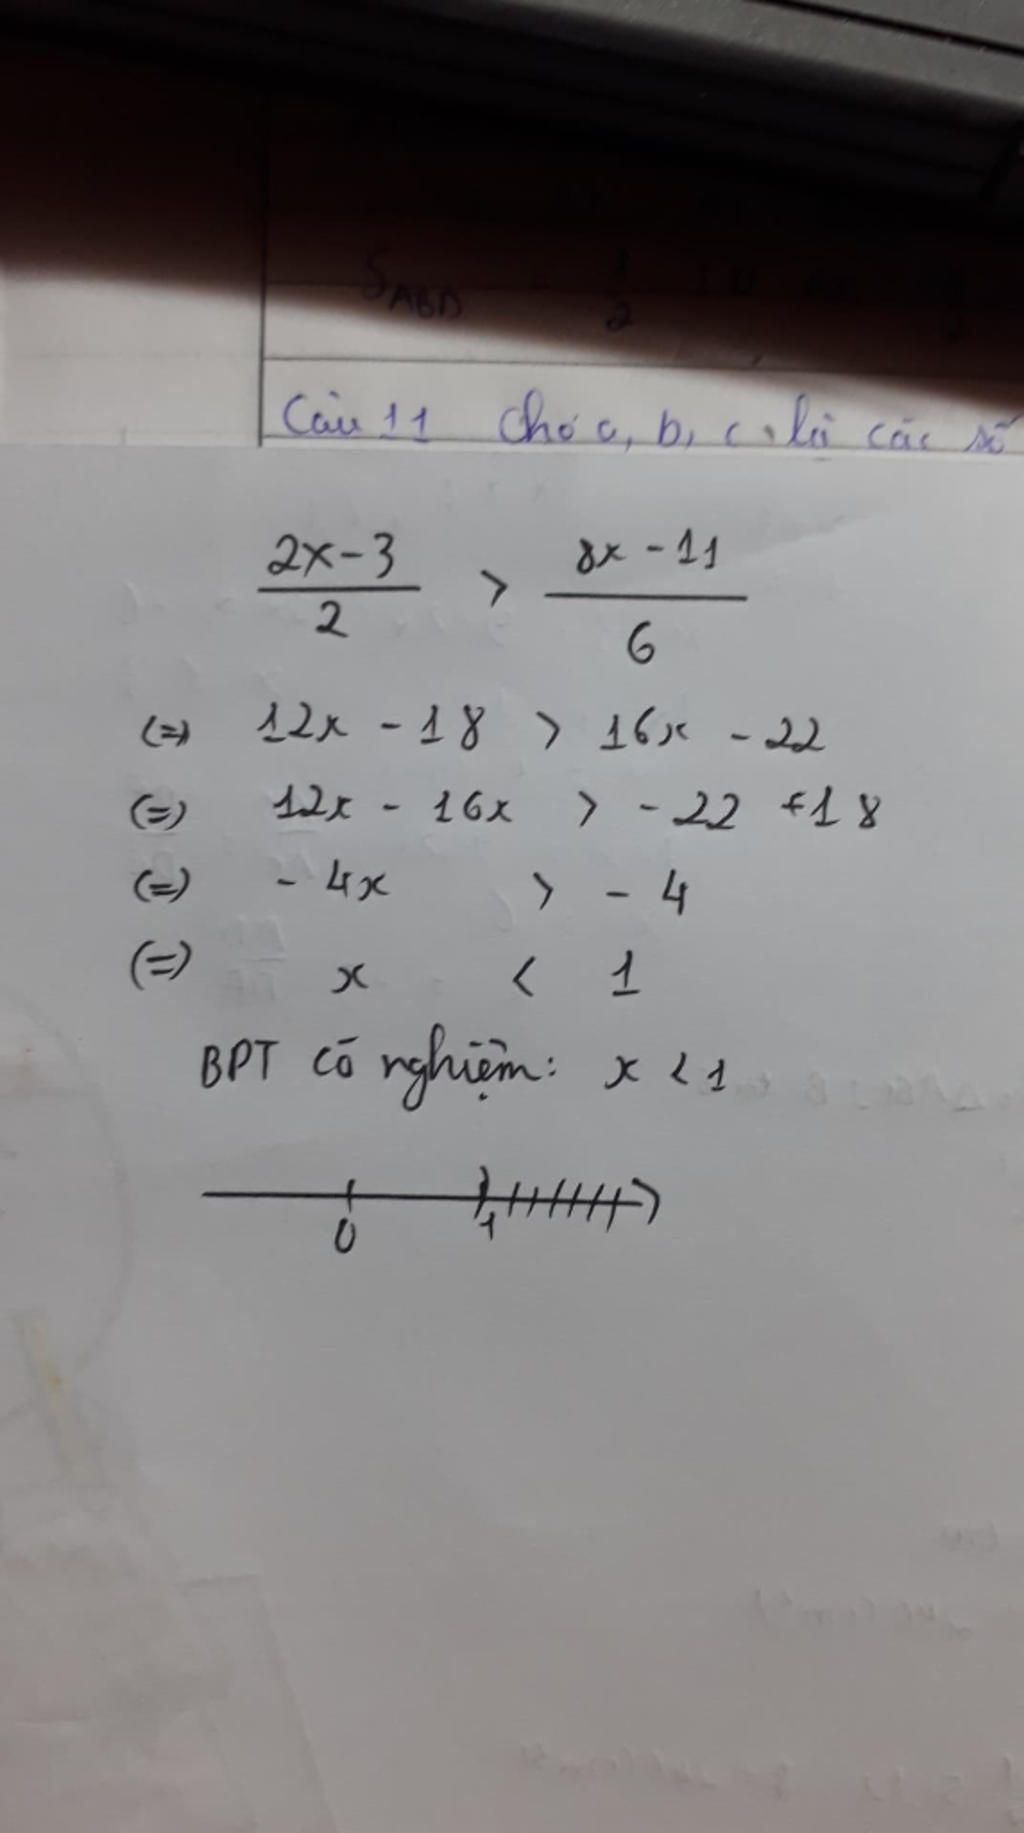 S_ABD 1/2
Câu 11 Cho a, b, c là các số
(2x-3)/2 > (8x-11)/6
(=) 12x - 18 > 16x - 22
(=) 12x - 16x > -22 +18
(=) - 4x > - 4
(=) x < 1
BPT có nghiệm: x < 1
0 1